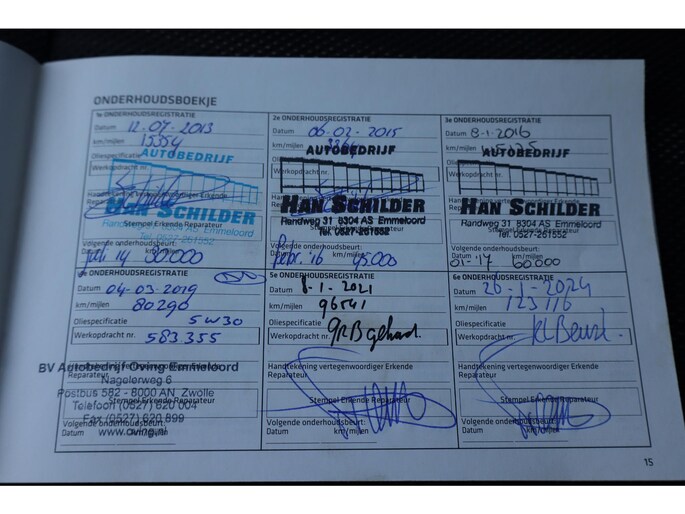 ONDERHOUDSBOEKJE
1e ONDERHOUDSREGISTRATIE
Datum 12-07-2013
km/mijlen 15354
Oliespecificatie
Werkopdracht nr.
AUTOBEDRIJF
HAN SCHILDER
Stempel Erkende Reparateur
Randweg 31 8304 AS Emmeloord
Tel. 0527-261552
Volgende onderhoudsbeurt:
Juli 14 30.000
2e ONDERHOUDSREGISTRATIE
Datum 06-02-2015
km/mijlen
Oliespecificatie
Werkopdracht nr.
AUTOBEDRIJF
HAN SCHILDER
Randweg 31 8304 AS Emmeloord
Stempel Erkende Reparateur
Tel. 0527-261552
Volgende onderhoudsbeurt:
Febr. '16 45.000
3e ONDERHOUDSREGISTRATIE
Datum 8-1-2016
km/mijlen
Oliespecificatie
Werkopdracht nr.
AUTOBEDRIJF
Handtekening vertegenwoordiger Erkende
HAN SCHILDER
Randweg 31 8304 AS Emmeloord
Tel. 0527-261552
Volgende onderhoudsbeurt:
01-'17 60000
4e ONDERHOUDSREGISTRATIE
Datum 04-03-2019
km/mijlen 80290
Oliespecificatie 5W30
Werkopdracht nr. 583.355
Handtekening vertegenwoordiger Erkende
Reparateur
BV Autobedrijf Oving Emmeloord
Nagelerweg 6
Postbus 582 - 8000 AN Zwolle
Stempel Erkende Reparateur
Telefoon (0527) 620 004
Fax (0527) 620 899
Volgende onderhoudsbeurt:
www.oving.nl
Datum km/mijlen
5e ONDERHOUDSREGISTRATIE
Datum 8-1-2021
km/mijlen 96541
Oliespecificatie
Werkopdracht nr.
Handtekening vertegenwoordiger Erkende
Reparateur
Stempel Erkende Reparateur
Volgende onderhoudsbeurt:
Datum km/mijlen
6e ONDERHOUDSREGISTRATIE
Datum 26-1-2024
km/mijlen 123116
Oliespecificatie
Werkopdracht nr. Kl Beurt.
Handtekening vertegenwoordiger Erkende
Reparateur
Stempel Erkende Reparateur
Volgende onderhoudsbeurt:
Datum km/mijlen
15